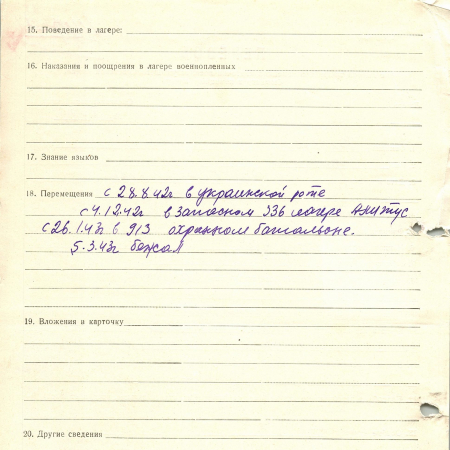 15. Поведение в лагере:
16. Наказания и поощрения в лагере военнопленных
17. Знание языков
18. Перемещения с 28.8.42г в украинской роте
с 4.12.42г в запасном 336 лагере Алитус
с 26.1.43г в 913 охранном батальоне.
5.3.43г бежал
19. Вложения в карточку
20. Другие сведения